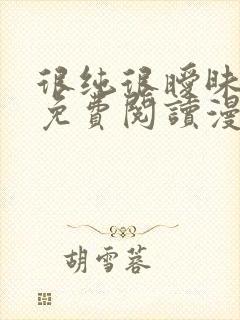 很纯很暧昧
免費閱讀漫
胡雪蓉